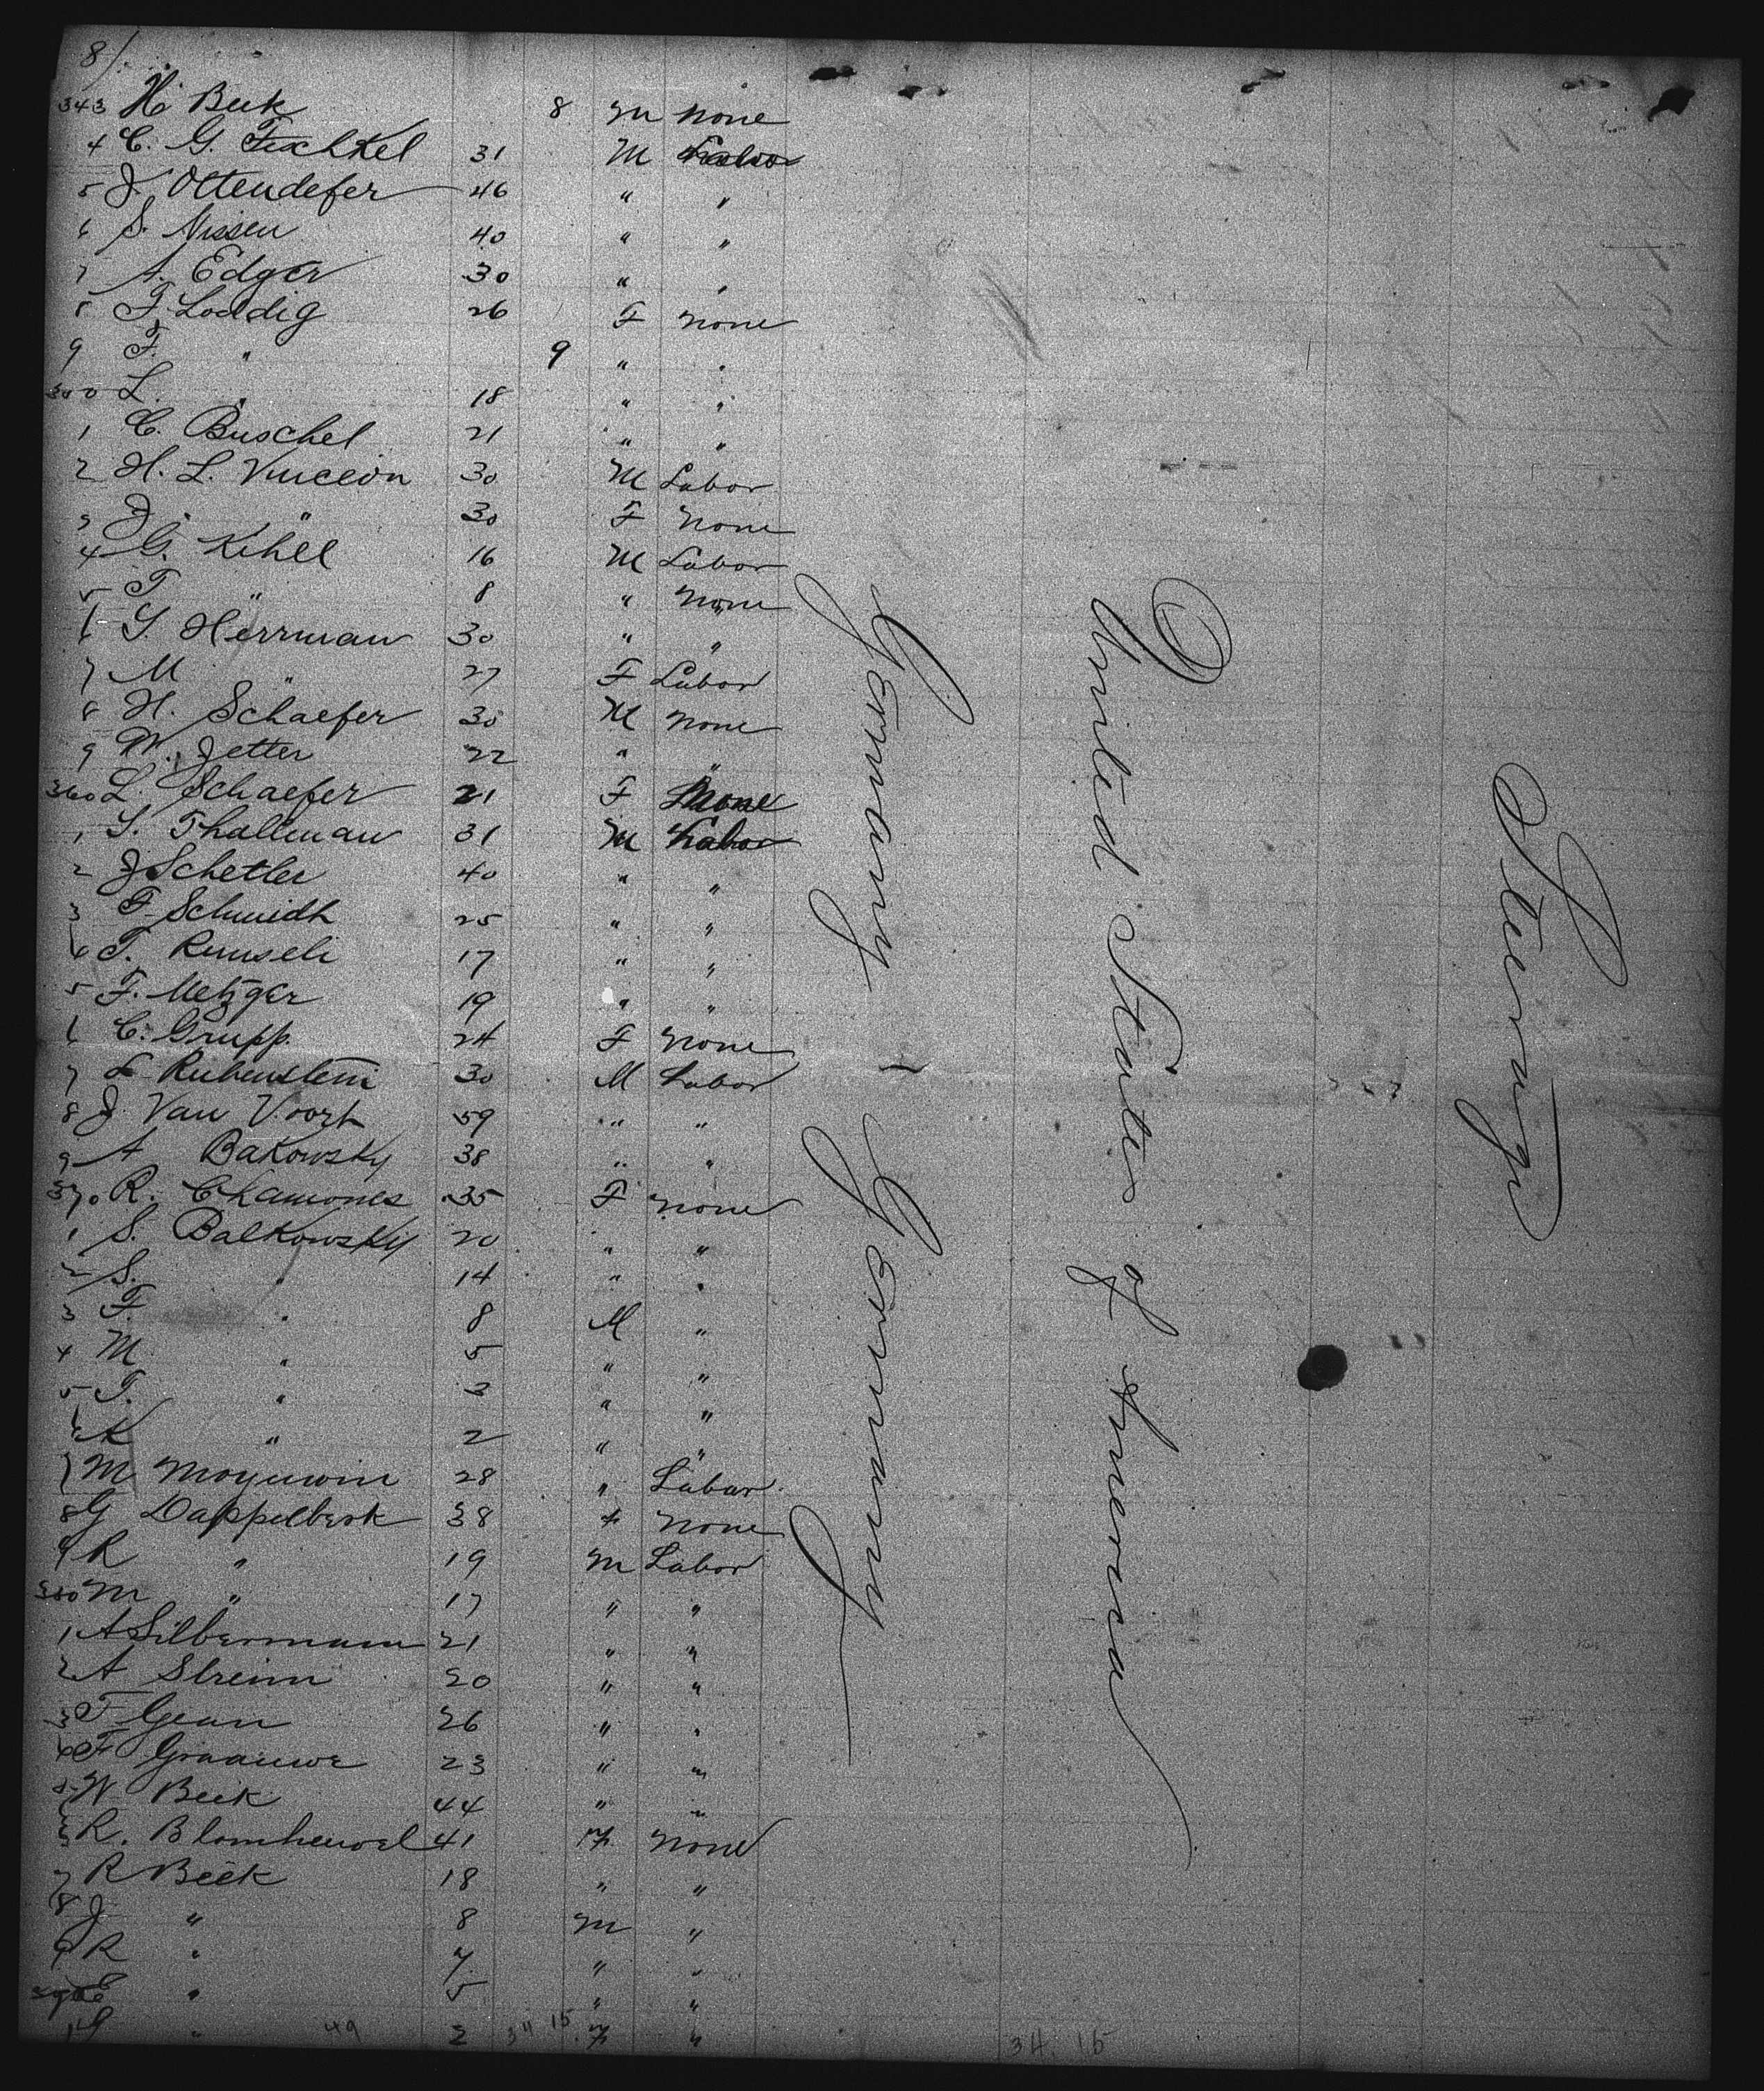 8/.
343 H. Beek 8 M None
4 C. G. Fischkel 31 M Labor
5 J. Ottendefer 46 " "
6 S. Nissen 40 " "
7 A. Edger 30 " "
8 F. Loddig 26 F None
9 F. " 9 " "
350 L. " 18 " "
1 C. Buschel 21 " "
2 H. L. Vinceon 30 M Labor
3 J. " 30 F None
4 G. Kihel 16 M Labor
5 T " 8 " None
6 S. Herrman 30 " "
7 M " 27 F Labor
8 H. Schaefer 30 M None
9 W. Jetter 22 " "
360 L. Schaefer 21 F None
1 S. Thallman 31 M Labor
2 J Schetler 40 " "
3 F. Schmidt 25 " "
4 T. Rumseli 17 " "
5 F. Metzger 19 " "
6 C. Grupp 24 F None
7 L Rubenstein 30 M Labor
8 J. Van Voort 59 " "
9 A Bakowsky 38 " "
370 R. Chamones 35 F None
1 S. Balkowsky 20 " "
2 S. " 14 " "
3 F. " 8 M "
4 M. " 5 " "
5 T. " 3 " "
6 K " 2 " "
7 M 28 " Labor
8 G Dappelbeck 38 F None
9 R " 19 M Labor
380 M " 17 " "
1 A Silbermann 21 " "
2 A Streim 20 " "
3 F Gean 26 " "
4 F Graauwe 23 " "
5 W Beek 44 " "
6 R. Blomheuvel 41 F None
7 R Beek 18 " "
8 J " 8 M "
9 R " 7 " "
390 E " 5 " "
1 G " 49 2 34 15 F " 34. 15
Germany
Germany
United States of America
Steerage